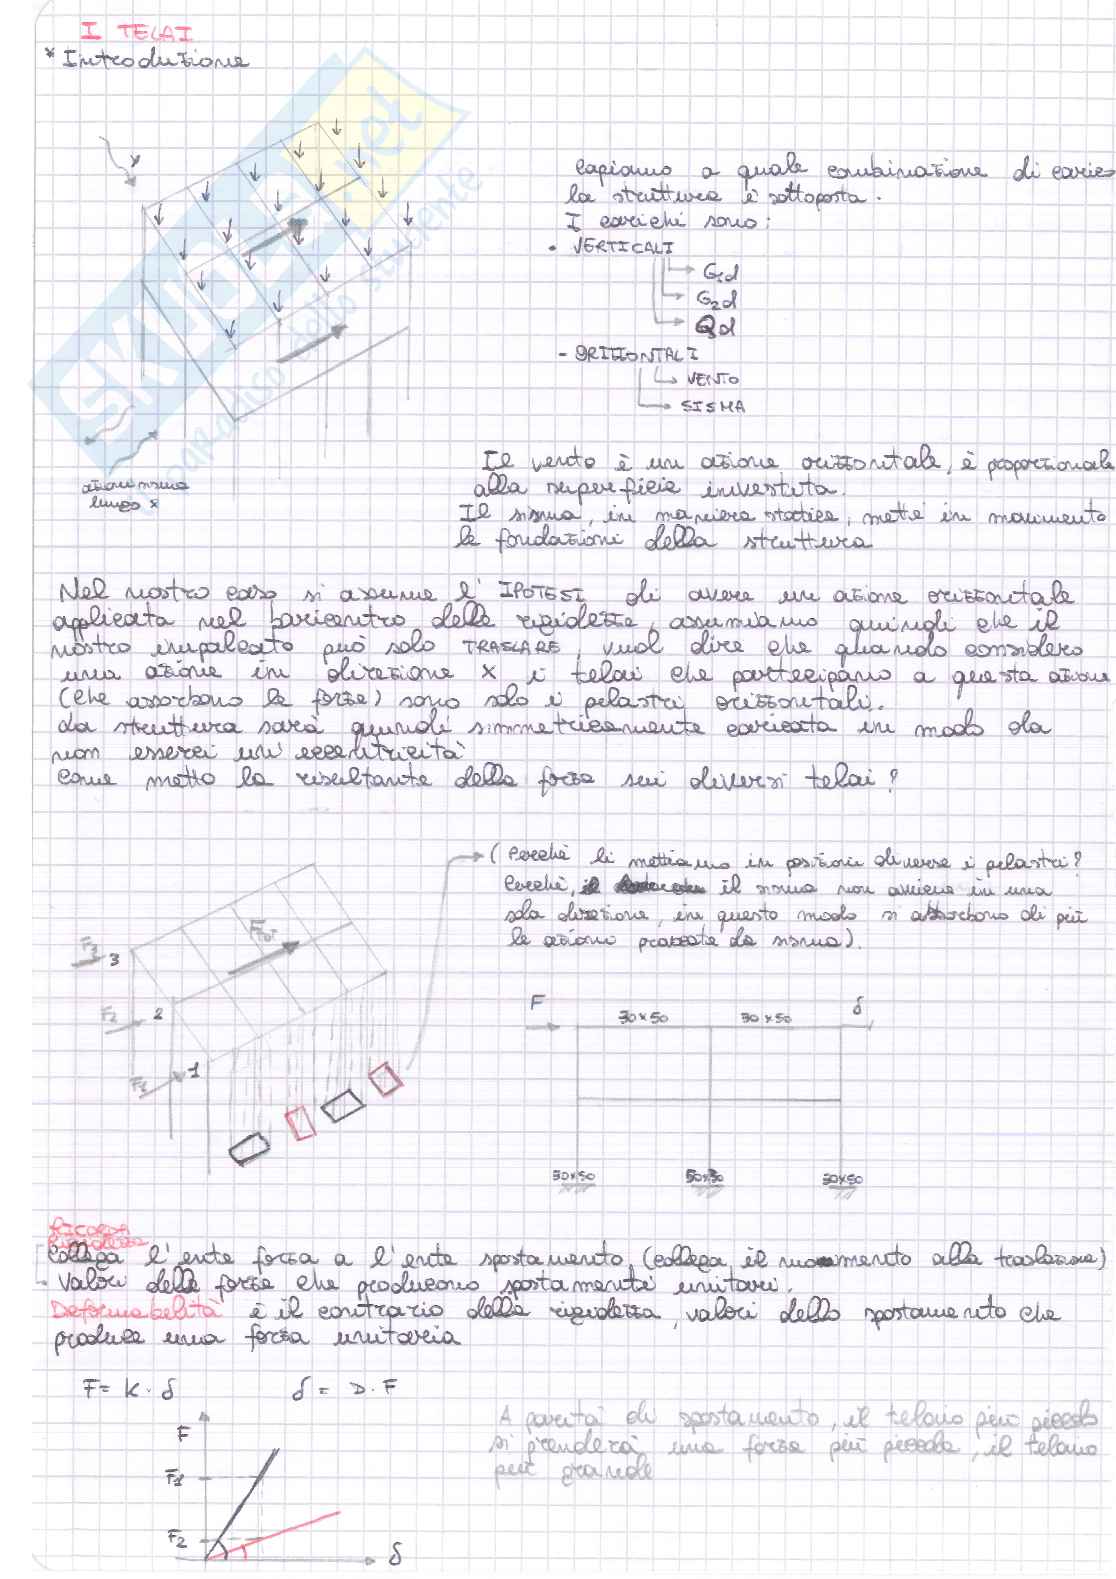 I TELAI
* Introduzione
y
Capiamo a quale combinazione di carico
la struttura è sottoposta.
I carichi sono:
• VERTICALI
G1d
G2d
Qd
- ORIZZONTALI
VENTO
SISMA
azioni sisma
lungo x
SKUOLA.net
paradiso dello studente
Il vento è un azione orizzontale, è proporzionale
alla superficie investita.
Il sisma, in maniera statica, mette in movimento
le fondazioni della struttura
Nel nostro caso si assume l' IPOTESI di avere un azione orizzontale
applicata nel baricentro delle rigidezze, assumiamo quindi che il
nostro impalcato può solo TRASLARE, vuol dire che quando considero
una azione in direzione X i telai che partecipano a questa azione
(che assorbono la forza) sono solo i pilastri orizzontali.
La struttura sarà quindi simmetricamente caricata in modo da
non esserci un' eccentricità
Come metto la risultante della forza sui diversi telai?
(Perchè li mettiamo in posizioni diverse i pilastri?
Perchè, il sisma non avviene in una
sola direzione, in questo modo si assorbono di più
le azioni provocate da sisma).
Ftot
F3
3
F2
2
F1
1
F
30×50
30×50
δ
30×50
50×30
30×50
RICORDA
Rigidezza
Collega l'ente forza a l'ente spostamento (collega il momento alla traslazione)
- Valori delle forze che producono spostamenti unitari.
Deformabilità è il contrario della rigidezza, valori dello spostamento che
produce una forza unitaria
F= K · δ
δ = D · F
A parità di spostamento, il telaio più piccolo
si prenderà una forza più piccola, il telaio
più grande
F
F1
F2
δ